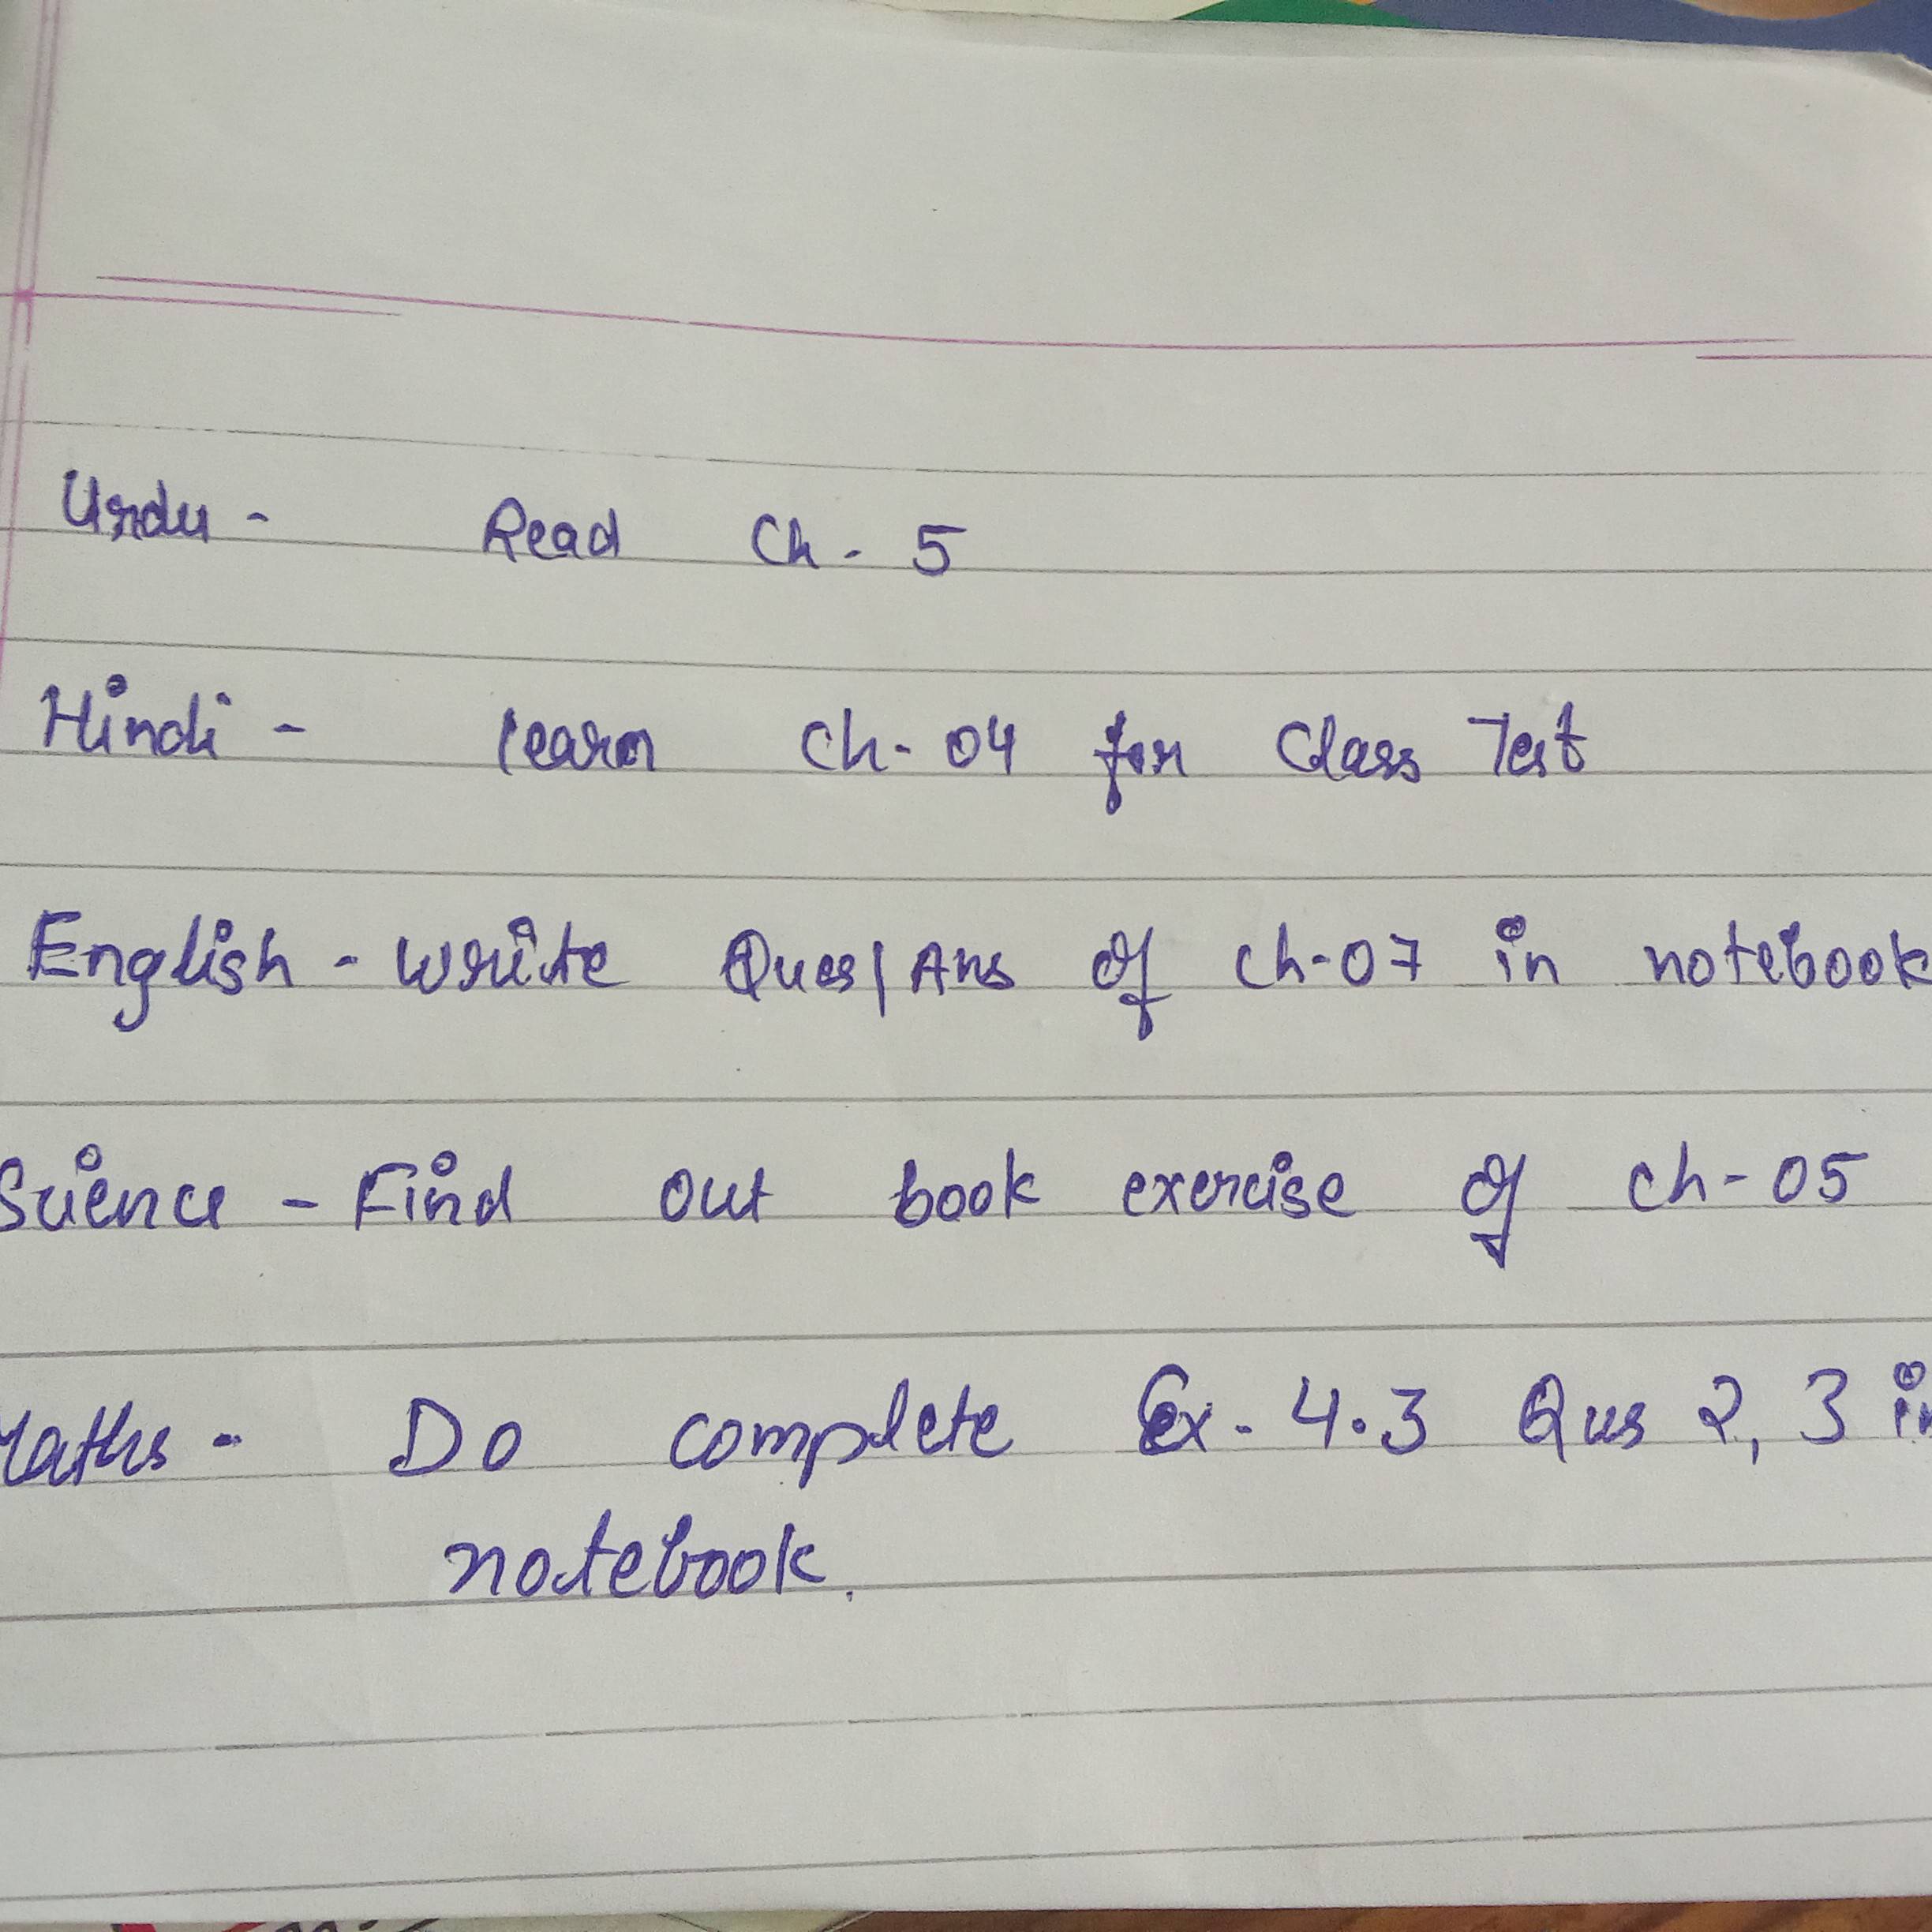 Urdu - Read Ch - 5
Hindi - learn Ch - 04 for Class Test
English - write Ques/Ans of ch-07 in notebook
Science - Find out book exercise of ch-05
Maths - Do complete Ex - 4.3 Qus 2, 3 in
notebook.